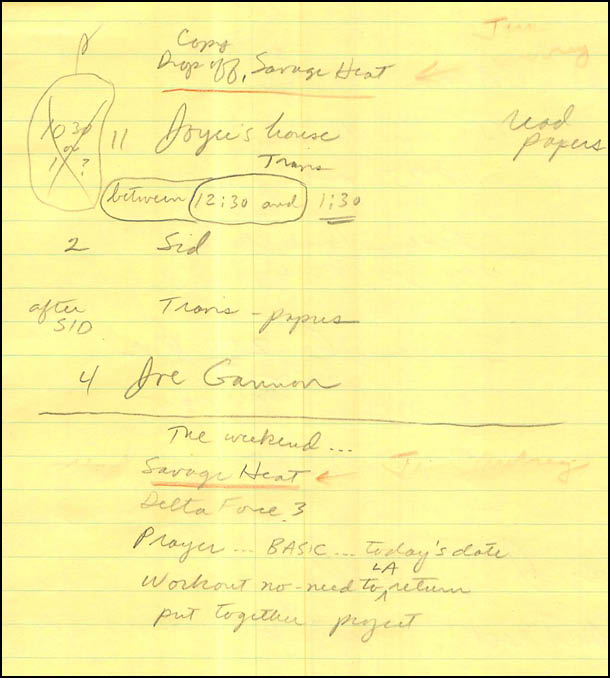 Copy
Drop off, Savage Heat
1030
or
11 ?
11 Joyce's house
read
papers
Travis
between 12:30 and 1:30
2 Sid
after
SID
Travis - papers
4 Joe Gannon
The weekend...
Savage Heat
Delta Force 3
Prayer... BASIC... today's date
Workout no-need to LA return
put together project